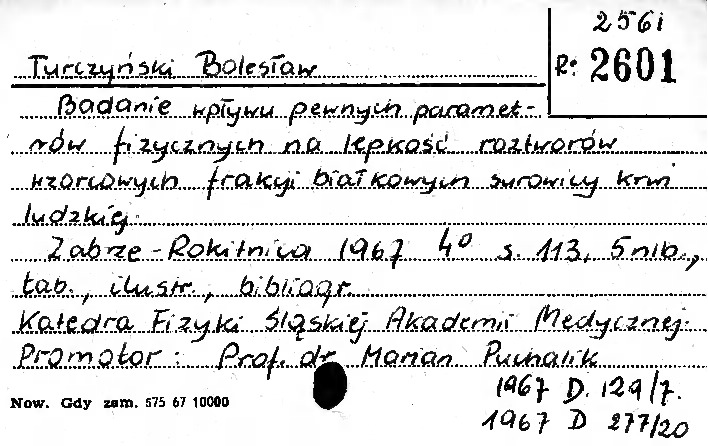 2561
R: 2601
Turczyński Bolesław
Badanie wpływu pewnych paramet-
rów fizycznych na lepkość roztworów
wzorcowych frakcji białkowych surowicy krwi
ludzkiej.
Zabrze-Rokitnica 1967 4° s. 113, 5 nlb.,
tab., ilustr., bibliogr.
Katedra Fizyki Śląskiej Akademii Medycznej.
Promotor: Prof. dr Marian Puchalik
1967 D. 129/7.
Now. Gdy zam. 575 67 10000
1967 D 277/20